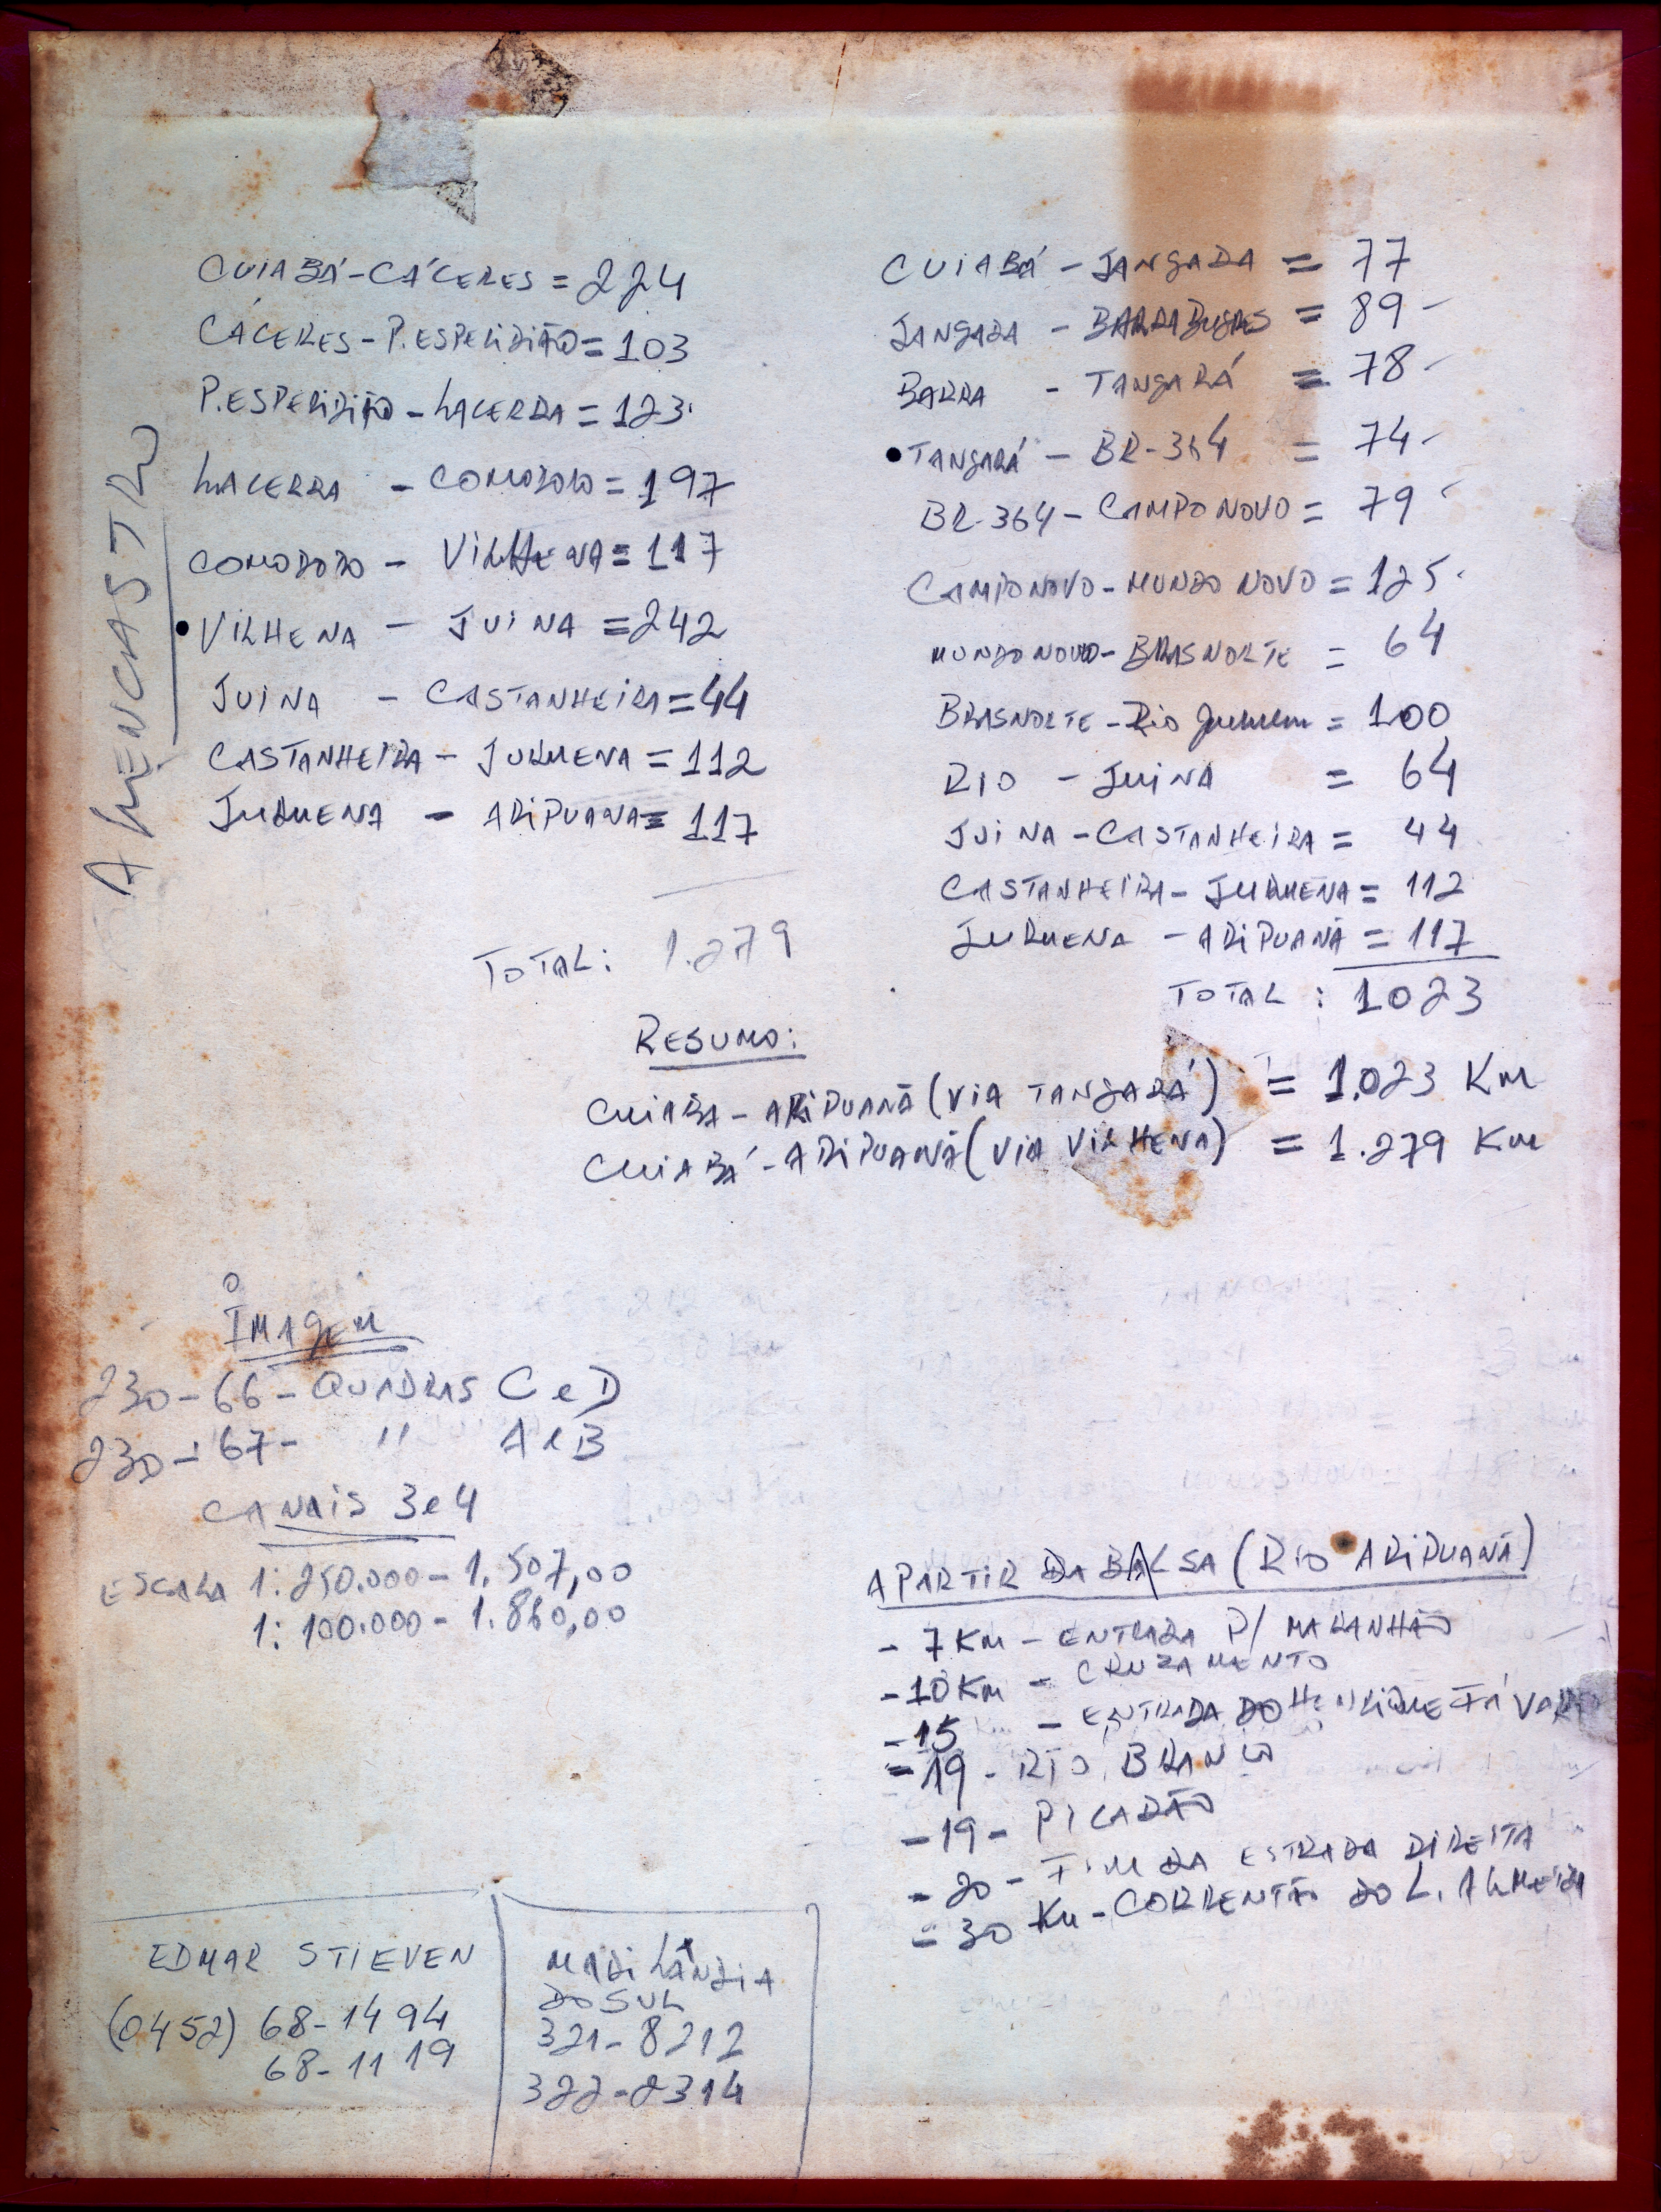 CUIABÁ-CÁCERES = 224
CÁCERES-P.ESPERIDIÃO = 103
P.ESPERIDIÃO-LACERDA = 123
LACERDA - COMODORO = 197
COMODORO - VILHENA = 117
• VILHENA - JUINA = 242
JUINA - CASTANHEIRA = 44
CASTANHEIRA - JURUENA = 112
JURUENA - ARIPUANA = 117
TOTAL: 1.279
CUIABÁ - JANGADA = 77
JANGADA - BARRA BUGRES = 89-
BARRA - TANGARÁ = 78-
• TANGARÁ - BR-364 = 74-
BR-364 - CAMPO NOVO = 79-
CAMPO NOVO - MUNDO NOVO = 125-
MUNDO NOVO - BRASNORTE = 64
BRASNORTE - Rio Juruena = 100
RIO - JUINA = 64
JUINA - CASTANHEIRA = 44
CASTANHEIRA - JURUENA = 112
JURUENA - ARIPUANÃ = 117
TOTAL: 1023
RESUMO:
CUIABA - ARIPUANÃ (VIA TANGARÁ) = 1.023 Km
CUIABÁ - ARIPUANÃ (VIA VILHENA) = 1.279 Km
IMAGEM
230-66- QUADRAS C e D
230-67- " A e B
CANAIS 3 e 4
ESCALA 1:250.000 - 1.507,00
1:100.000 - 1.860,00
A PARTIR DA BALSA (RIO ARIPUANÃ)
- 7 KM - ENTRADA P/ MARANHÃO
- 10 KM - CRUZAMENTO
- 15 Km - ENTRADA DO HENRIQUE
= 19 - RIO BRANCO
- 19 - PICADÃO
- 20 - FIM DA ESTRADA DIREITA
= 30 Km - CORRENTÃO DO L. ALMEIDA
EDMAR STIEVEN
(0452) 68-1494
68-1119
DO SUL
321-8212
322-2314